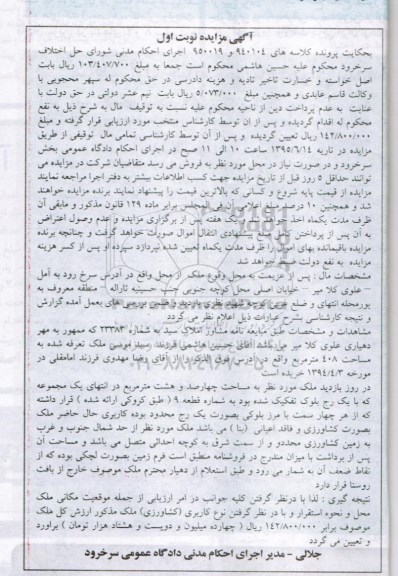 آگهی مزایده نوبت اول
بحکایت پرونده کلاسه های ۹۴۰۱۰۴ و ۹۵۰۰۱۹ اجرای احکام مدنی شورای حل اختلاف
سرخرود محکوم علیه حسین هاشمی محکوم است جمعا به مبلغ ۱۰۳/۴۰۷/۷۰۰ ریال بابت
اصل خواسته و خسارت تاخیر تادیه و هزینه دادرسی در حق محکوم له سپهر محجوبی با
وکالت قاسم عابدی و همچنین مبلغ ۵/۰۷۳/۰۰۰ ریال بابت نیم عشر دولتی در حق دولت با
عنایت به عدم پرداخت دین از ناحیه محکوم علیه نسبت به توقیف مال به شرح ذیل به نفع
محکوم له اقدام گردیده و پس از آن توسط کارشناس منتخب مورد ارزیابی قرار گرفته و مبلغ
۱۴۲/۸۰۰/۰۰۰ ریال تعیین گردیده و پس از آن توسط کارشناسی تمامی مال توقیفی از طریق
مزایده در تاریخ ۱۳۹۵/۶/۱۴ ساعت ۱۰ الی ۱۱ صبح در اجرای احکام دادگاه عمومی بخش
سرخرود و در صورت نیاز در محل مورد نظر به فروش می رسد متقاضیان شرکت در مزایده می
توانند حداقل ۵ روز قبل از تاریخ مزایده جهت کسب اطلاعات بیشتر به دفتر اجرا مراجعه نمایند
مزایده از قیمت پایه شروع و کسانی که بالاترین قیمت را پیشنهاد نمایند برنده مزایده خواهند
شد و همچنین ۱۰ درصد مبلغ اعلامی آن فی المجلس برابر ماده ۱۲۹ قانون مذکور و مابقی آن
ظرف مدت یکماه اخذ یک هفته پس از برگزاری مزایده و عدم وصول اعتراض
به آن پس از پرداختن پیشنهادی انتقال اموال صورت خواهد گرفت و چنانچه برنده
مزایده باقیمانده بهای اموال را ظرف مدت یکماه تعیین شده نپردازد سپرده او پس از کسر هزینه
مزایده به نفع دولت ضبط خواهد شد
مشخصات مال : پس از عزیمت به محل وقوع ملک از محل واقع در آدرس سرخ رود به آمل
– علوی کلا میر – خیابان اصلی محل کوچه جنوبی جنب حسینیه ثاراله – منطقه معروف به
پورمحله انتهای و ضلع بازدید و ضمن بررسی های بعمل آمده گزارش
و نتیجه کارشناسی بشرح عبارات ذیل اعلام نظر می گردد
مشاهدات و مشخصات طبق مبایعه نامه مشاور املاک سید به شماره ۲۳۳۸۳ که ممهور به مهر
دهیاری علوی کلا میر می باشد آقای حسین هاشمی فرزند سیدمومن ملک تعرفه شده به
مساحت ۴۰۸ مترمربع واقع در آدرس فوق الذکر را از آقای رضا مهدوی فرزند امامقلی در
مورخه ۱۳۹۴/۴/۳ خریده است
در روز بازدید ملک مورد نظر به مساحت چهارصد و هشت مترمربع در انتهای یک مجموعه
که با یک رج بلوک تفکیک شده بود به شماره قطعه ۹ (طبق کروکی ارائه شده ) قرار داشته
که از هر چهار سمت با مرز بلوکی بصورت یک رج محدود بوده کاربری حال حاضر ملک
بصورت کشاورزی و فاقد اعیانی (بنا ) می باشد ملک مورد نظر از حد شمال جنوب و غرب
به زمین کشاورزی محددو و از سمت شرق به کوچه احداثی متصل می باشد و مساحت آن
پس از برداشت با میزان مندرج در فروشنامه منطبق است فرم زمین بصورت لچکی بوده که از
نقاط ضعف آن به شمار می رود و طبق استعلام از دهیار محترم ملک موصوف خارج از بافت
روستا قرار دارد
نتیجه گیری : لذا با درنظر گرفتن کلیه جوانب در امر ارزیابی از جمله موقعیت مکانی ملک
محل و نحوه استقرار و با در نظر گرفتن نوع کاربری (کشاورزی) ملک مذکور ارزش کل ملک
موصوف برابر ۱۴۲/۸۰۰/۰۰۰ ریال ( چهارده میلیون و دویست و هشتاد هزار تومان ) براورد
و تعیین می گردد
جلالی – مدیر اجرای احکام مدنی دادگاه عمومی سرخرود